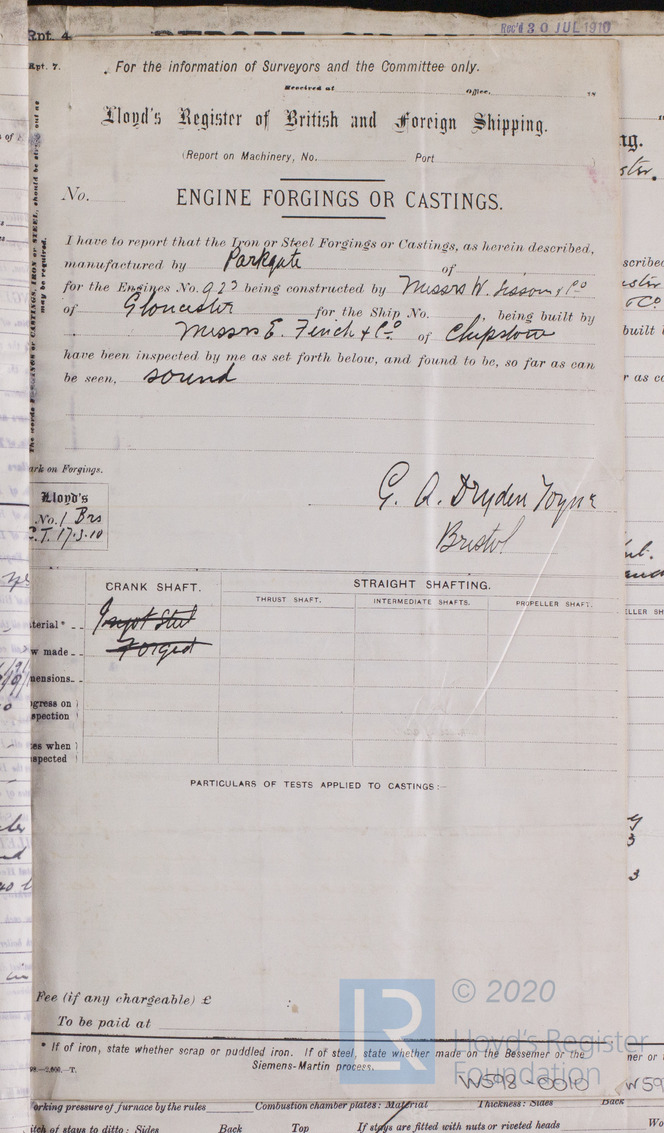 Rpt. 4.
Rec'd 30 JUL 1910
Rpt. 7.
For the information of Surveyors and the Committee only.
Received at Office, 18
Lloyd's Register of British and Foreign Shipping.
(Report on Machinery, No. Port )
No.
ENGINE FORGINGS OR CASTINGS.
I have to report that the Iron or Steel Forgings or Castings, as herein described,
manufactured by Parkgate of
for the Engines No. 923 being constructed by Messrs W. Sisson & Co
of Gloucester for the Ship No. , being built by
Messrs E. Finch & Co. of Chepstow
have been inspected by me as set forth below, and found to be, so far as can
be seen, sound
The words FORGINGS or CASTINGS, IRON or STEEL, should be struck out as
may be required.
ark on Forgings.
Lloyd's
No. 1 Brs
C.T. 17.3.10
G. A. Dryden Toyne
Bristol
CRANK SHAFT. STRAIGHT SHAFTING.
THRUST SHAFT. INTERMEDIATE SHAFTS. PROPELLER SHAFT.
terial* Ingot Steel
w made Forged
mensions
ogress on
spection
es when
spected
PARTICULARS OF TESTS APPLIED TO CASTINGS:—
Fee (if any chargeable) £
To be paid at
* If of iron, state whether scrap or puddled iron. If of steel, state whether made on the Bessemer or the
Siemens-Martin process.
98.—2,000.—T.
LR © 2020
Lloyd's Register
Foundation
W598-0010
W59
orking pressure of furnace by the rules Combustion chamber plates: Material Thickness: Sides Back
itch of stays to ditto: Sides Back Top If stays are fitted with nuts or riveted heads